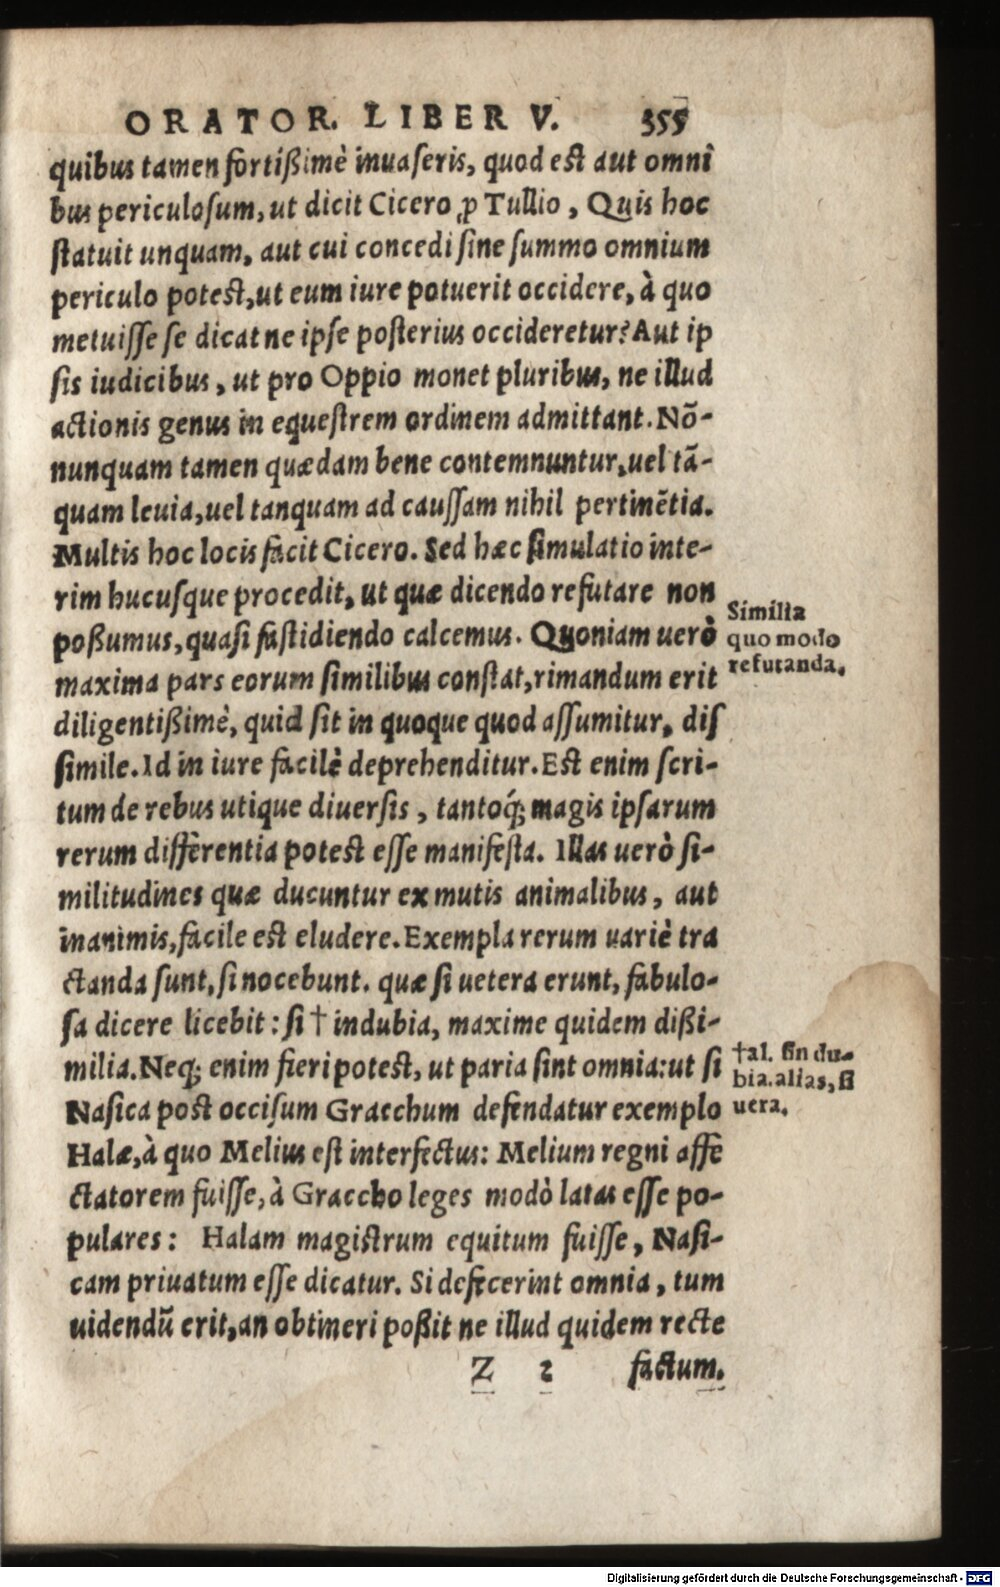 ORATOR. LIBER V. 355
quibus tamen fortißimè inuaseris, quod est aut omni
bus periculosum, ut dicit Cicero ꝓ Tullio, Quis hoc
statuit unquam, aut cui concedi sine summo omnium
periculo potest, ut eum iure potuerit occidere, à quo
metuisse se dicat ne ipse posterius occideretur? Aut ip
sis iudicibus, ut pro Oppio monet pluribus, ne illud
actionis genus in equestrem ordinem admittant. Nō-
nunquam tamen quædam bene contemnuntur, uel tā-
quam leuia, uel tanquam ad caussam nihil pertinētia.
Multis hoc locis facit Cicero. Sed hæc simulatio inte-
rim hucusque procedit, ut quæ dicendo refutare non
poßumus, quasi fastidiendo calcemus. Quoniam uerò
maxima pars eorum similibus constat, rimandum erit
diligentißimè, quid sit in quoque quod assumitur, dis
simile. Id in iure facilè deprehenditur. Est enim scri-
tum de rebus utique diuersis, tantoq́; magis ipsarum
rerum differentia potest esse manifesta. Illas uerò si-
militudines quæ ducuntur ex mutis animalibus, aut
inanimis, facile est eludere. Exempla rerum uariè tra
ctanda sunt, si nocebunt. quæ si uetera erunt, fabulo-
sa dicere licebit: si † indubia, maxime quidem dißi-
milia. Neq; enim fieri potest, ut paria sint omnia: ut si
Nasica post occisum Gracchum defendatur exemplo
Halæ, à quo Melius est interfectus: Melium regni affe
ctatorem fuisse, à Graccho leges modò latas esse po-
pulares: Halam magistrum equitum fuisse, Nasi-
cam priuatum esse dicatur. Si defecerint omnia, tum
uidendū erit, an obtineri poßit ne illud quidem recte
Z 2 factum.
Similia
quo modo
refutanda.
†al. sin du-
bia. alias, si
uera.
Digitalisierung gefördert durch die Deutsche Forschungsgemeinschaft - DFG